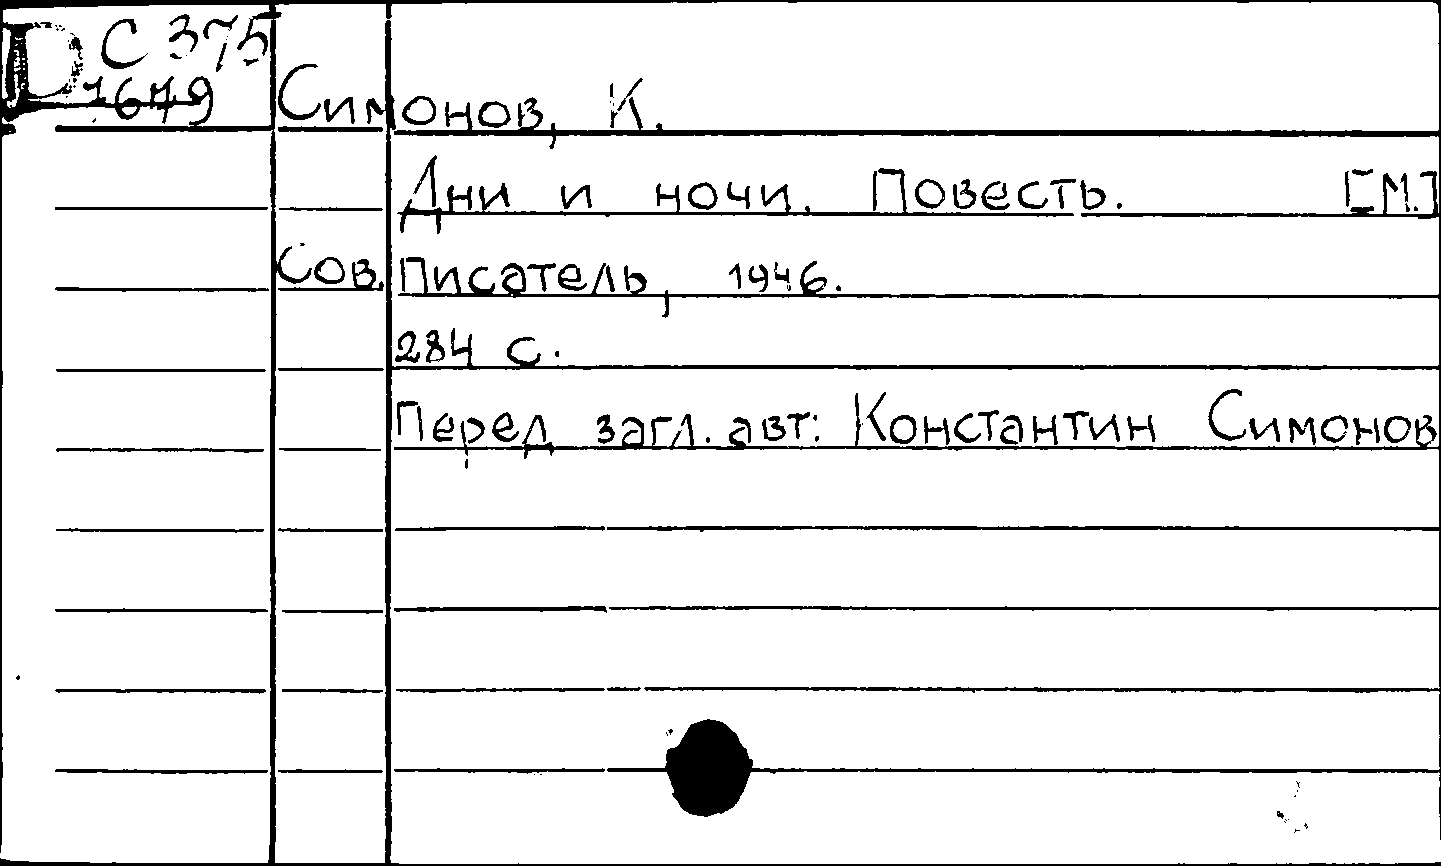 D C 375
1679
Симонов, К.
Дни и ночи. Повесть. [М.]
Сов. Писатель, 1946.
284 с.
Перед загл. авт: Константин Симонов